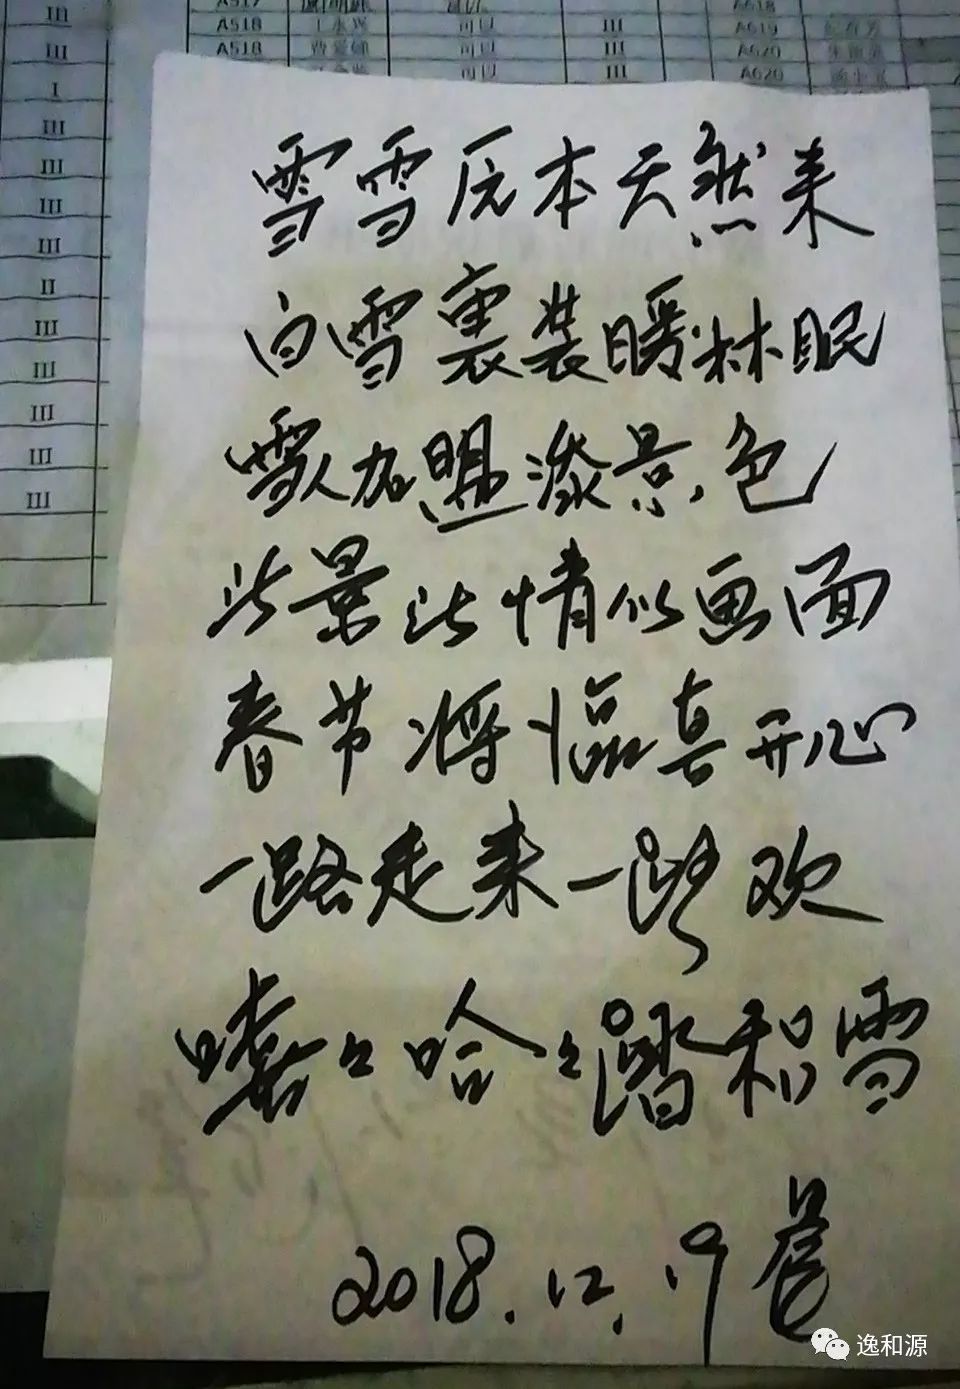 A518 可以 III A619
III A518 可以 III A620
I 可以 III A620
III
III
III
III
II
III
III
III
III
III
雪雪原本天然来
白雪裹装暖林眠
雪人加盟添景色
此景此情似画面
春节将临真开心
一路走来一路欢
嘻々哈々踏和雪
2018.12.19晨
逸和源